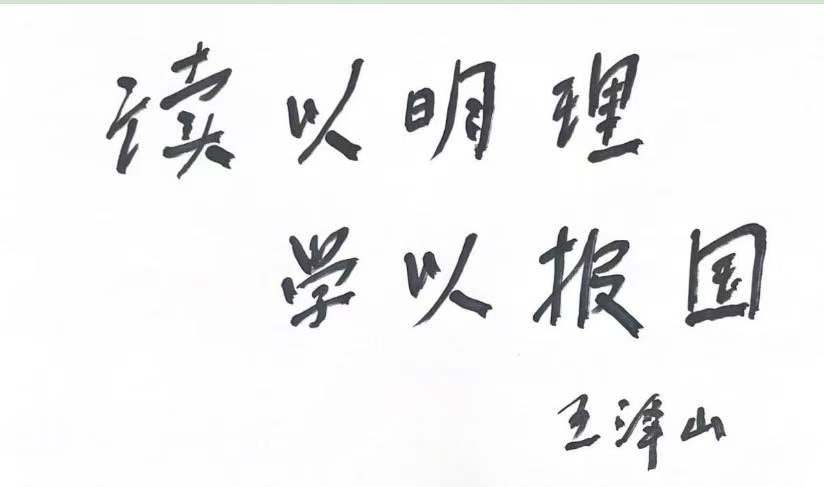 读以明理
学以报国
王泽山